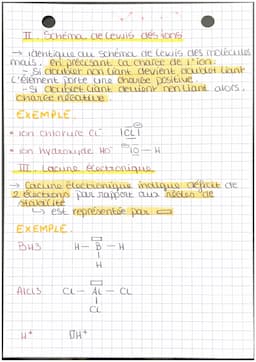 II Schéma de Lewis des ions
→ identique au schéma de Lewis des molécules
mais, en précisant la charge de l'ion.
- Si doublet non liant devient doublet liant
l'élément porte une charge positive.
- Si doublet liant devient non liant alors,
charge négative.
EXEMPLE.
• ion chlorure Cl⁻ |Cl| ⊖
• ion hydroxyde HO⁻ ⊖ |O — H
III Lacune électronique
→ Lacune électronique indique déficit de
2 électrons par rapport aux règles de
stabilité
↳ est représentée par ▭
EXEMPLE.
BH3 H — B — H
H
AlCl3 Cl — Al — Cl
Cl
H⁺ ▯H⁺